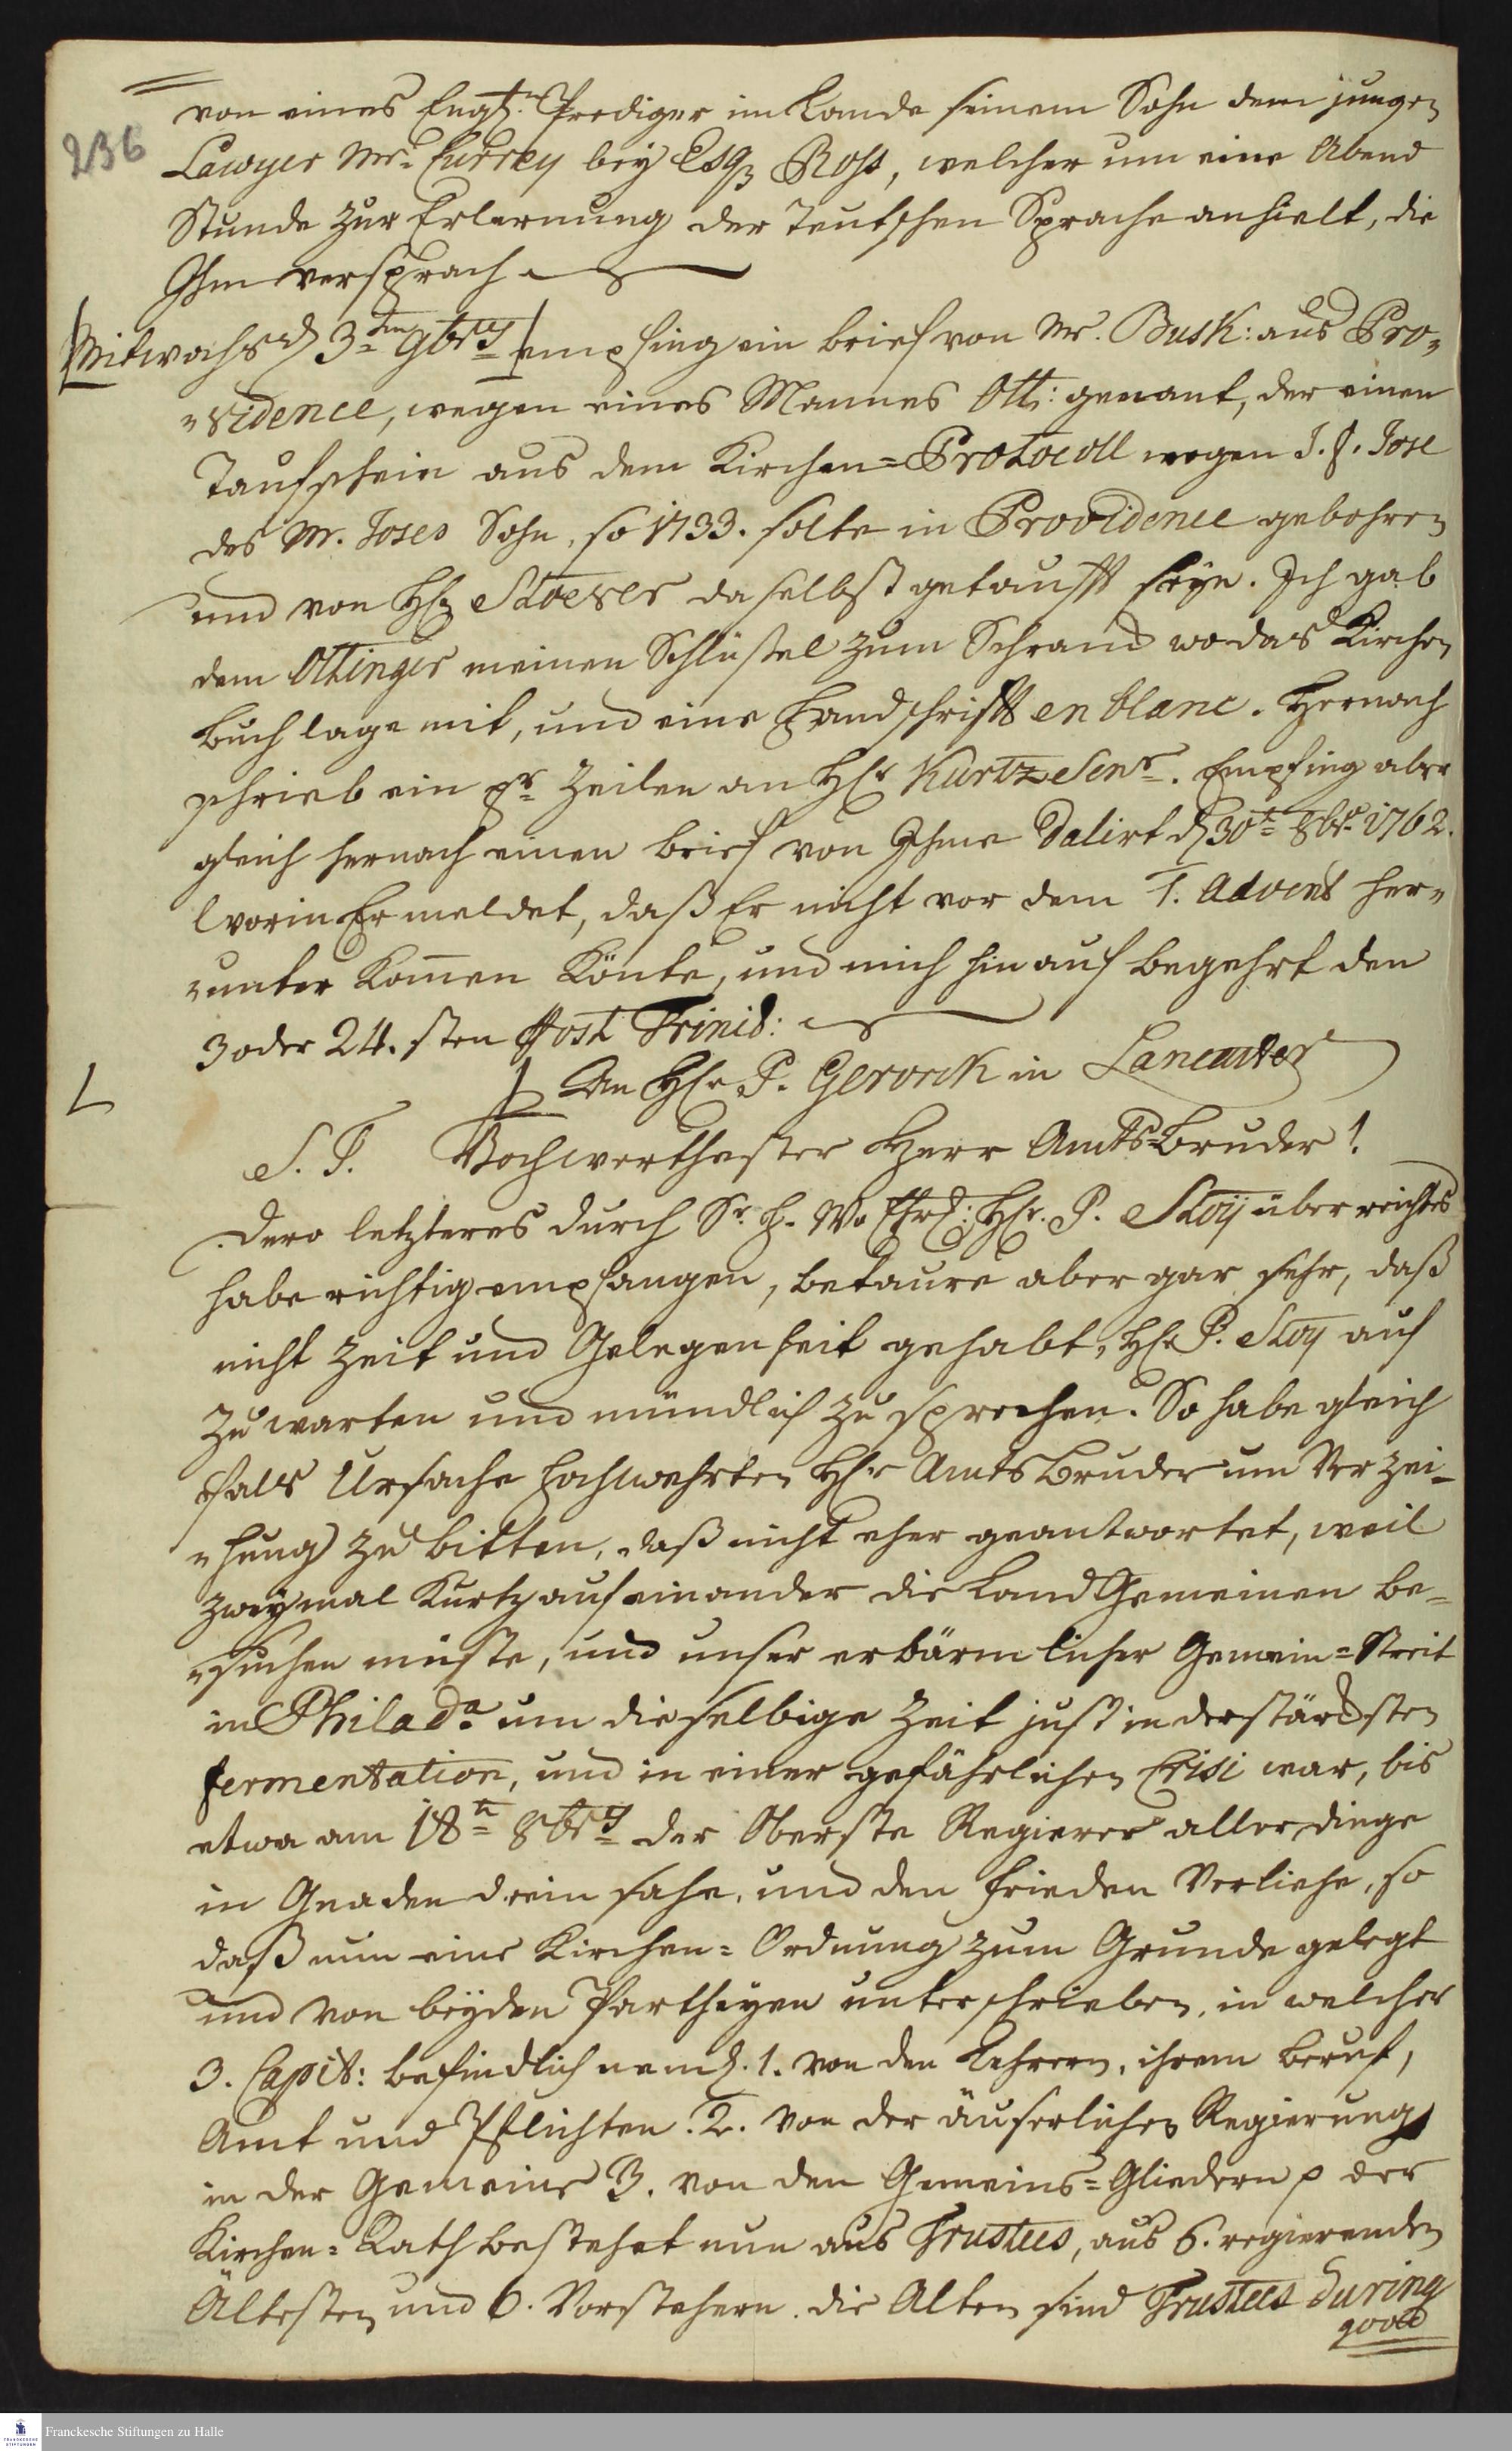 236
von eines Engl. Prediger im Lande seinem Sohn dem jungen
Lawyer Mr. Currey bey Esqr Ross, welcher um eine Abend
Stunde zur Erlernung der Teutschen Sprache anhielt, die
Ihm versprach
Mitwochs d 3ten 9brs empfing ein brief von Mr. Busk: aus Pro„
„vidence, wegen eines Mannes Ott: genant, der einen
Taufschein aus dem Kirchen=Protocoll wegen J. J. Jose
des Mr. Joses Sohn, so 1733. solte in Providence gebohren
und von Hr Stoever daselbst getaufft seyn. Ich gab
dem Ottinger meinen Schlüssel zum Schranck wo das Kirchen
Buch lage mit, und eine Handschrifft en blanc. Hernach
schrieb ein pr Zeilen an Hr Kurtz Senr. Empfing aber
gleich hernach einen brief von Ihme datirt d 30t 8br 1762.
worin Er meldet, daß Er nicht vor dem 1. Advent her„
„unter komen könte, und mich hinauf begehrt den
3 oder 24.sten post Trinit:
An Hr P. Gerock in Lancaster
S. T. Hochwerthester Herr Amts=Bruder!
Dero letzteres durch Sr. H. Wo Ehrd: Hr. P. Stoy überreichtes
habe richtig empfangen, betaure aber gar sehr, daß
nicht Zeit und Gelegenheit gehabt, Hr P. Stoy auf
zu warten und mündlich zu sprechen. So habe gleich
fals Ursache hochwehrten Hr Amts Bruder um Verzei„
„hung zu bitten, daß nicht eher geantwortet, weil
zweymal kurtz auf einander die Land Gemeinen be„
„suchen müste, und unser erbärmlicher Gemein=Streit
in Philada um dieselbige Zeit just in der stärcksten
fermentation, und in einer gefährlichen Crisi war, bis
etwa am 18ten 8brs der Oberste Regierer aller dinge
in Gnaden drein sahe, und den Frieden Verliehe, so
daß nun eine Kirchen=Ordnung zum Grunde gelegt
und von beyden Partheyen unterschrieben, in welcher
3. Capit: befindlich neml. 1. von den Lehrern, ihrem Beruf,
Amt und Pflichten. 2. von der äuserlichen Regierung
in der Gemeine 3. von den Gemeins=Gliedern p der
Kirchen=Rath bestehet nun aus Trustees, aus 6. regierenden
Ältesten und 6. Vorstehern. die Alten sind Trustees during
good
Franckesche Stiftungen zu Halle